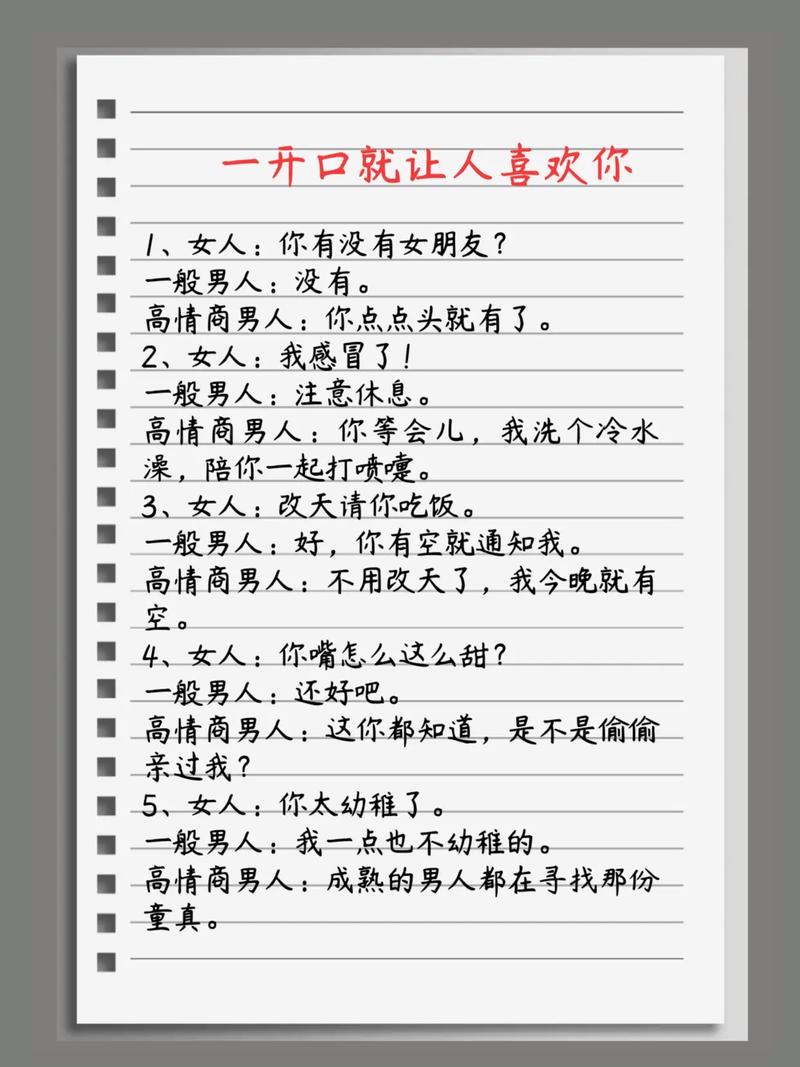 一开口就让人喜欢你
1、女人：你有没有女朋友？
一般男人：没有。
高情商男人：你点点头就有了。
2、女人：我感冒了！
一般男人：注意休息。
高情商男人：你等会儿，我洗个冷水
澡，陪你一起打喷嚏。
3、女人：改天请你吃饭。
一般男人：好，你有空就通知我。
高情商男人：不用改天了，我今晚就有
空。
4、女人：你嘴怎么这么甜？
一般男人：还好吧。
高情商男人：这你都知道，是不是偷偷
亲过我？
5、女人：你太幼稚了。
一般男人：我一点也不幼稚的。
高情商男人：成熟的男人都在寻找那份
童真。